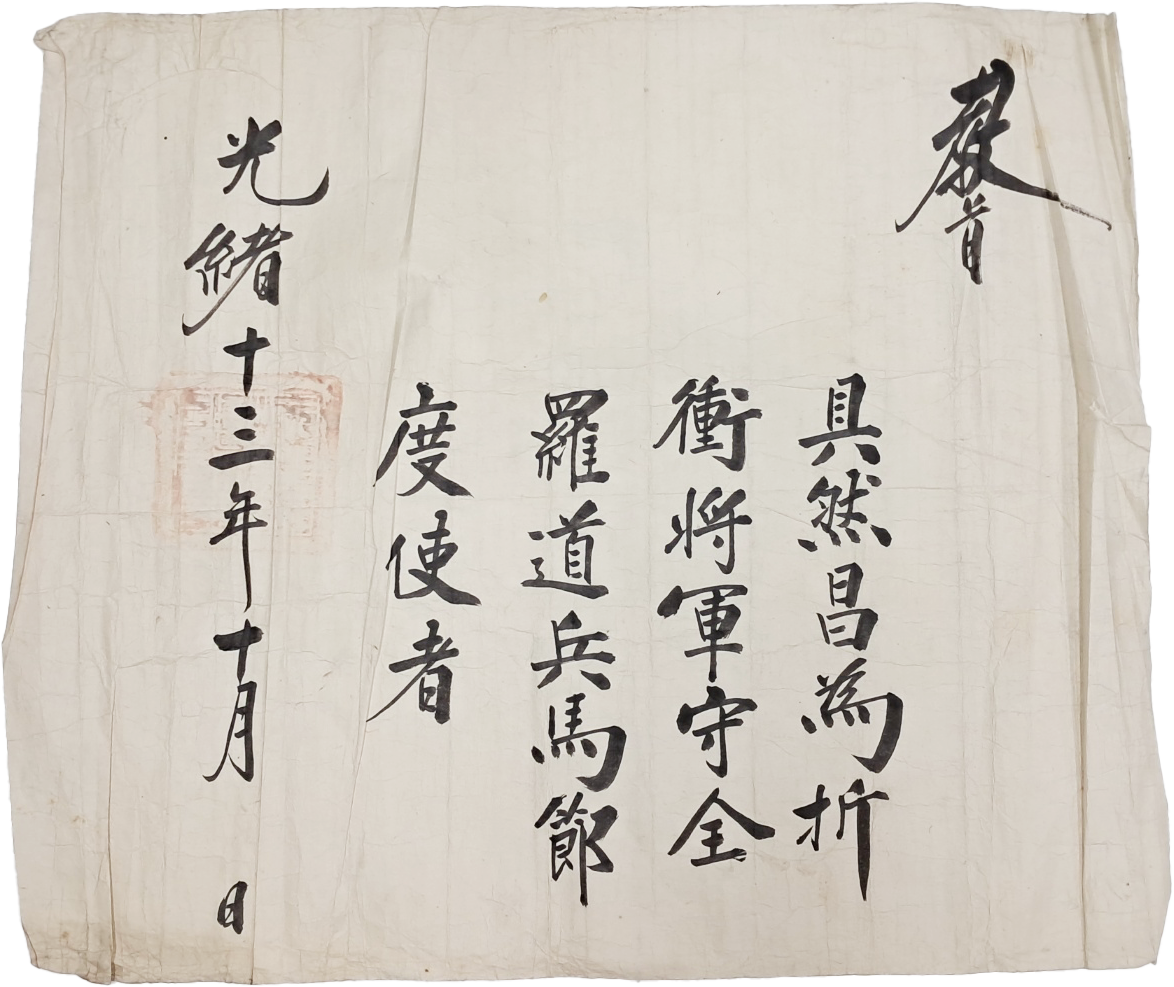 敎旨
具然昌為折
衝将軍守全
羅道兵馬節
度使者
光緒十三年十月 日